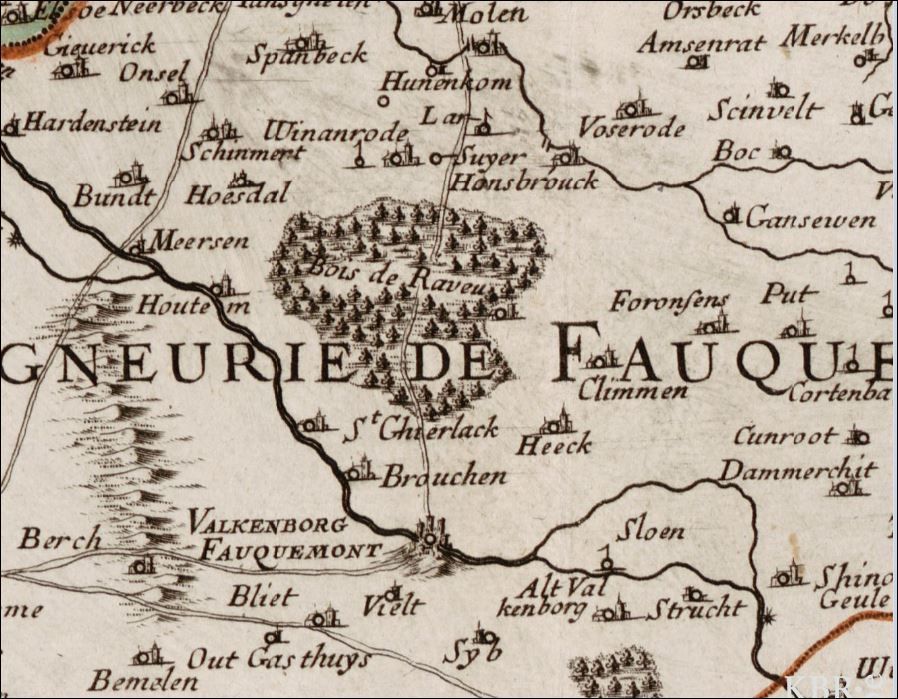 Neerbeeck
Molen
Orsbeck
Gieuerick
Spanbeck
Amsenrat
Merkelb
Onsel
Hunenkom
Hardenstein
Winanrode
Lar
Voserode
Scinvelt
Ge
Schinmert
Suyer
Boc
Bundt
Hoesdal
Honsbrouck
Gansewen
Meersen
Bois de Raveu
Houtem
Foronsens
Put
GNEURIE DE FAUQUE
Climmen
Cortenba
St Ghierlack
Heeck
Cunroot
Brouchen
Dammerchit
Berch
VALKENBORG
FAUQUEMONT
Sloen
Bliet
Vielt
Alt Val
kenborg
Strucht
Shino
Geule
me
Out Gasthuys
Syb
Bemelen
KBR